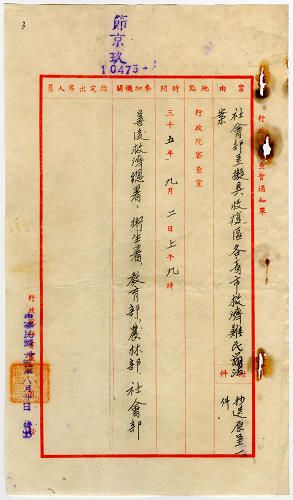 3
節京玖
10475
行政院審查會通知單
案由
社會部呈擬具收復區各省市救濟難民辦法
案
附件
抄送原呈一件
地點
行政院審查室
時間
三十五年九月二日上午九時
參加機關
善後救濟總署、衛生署、教育部、農林部、社會部
指定出席人員
行政院
八月卅日